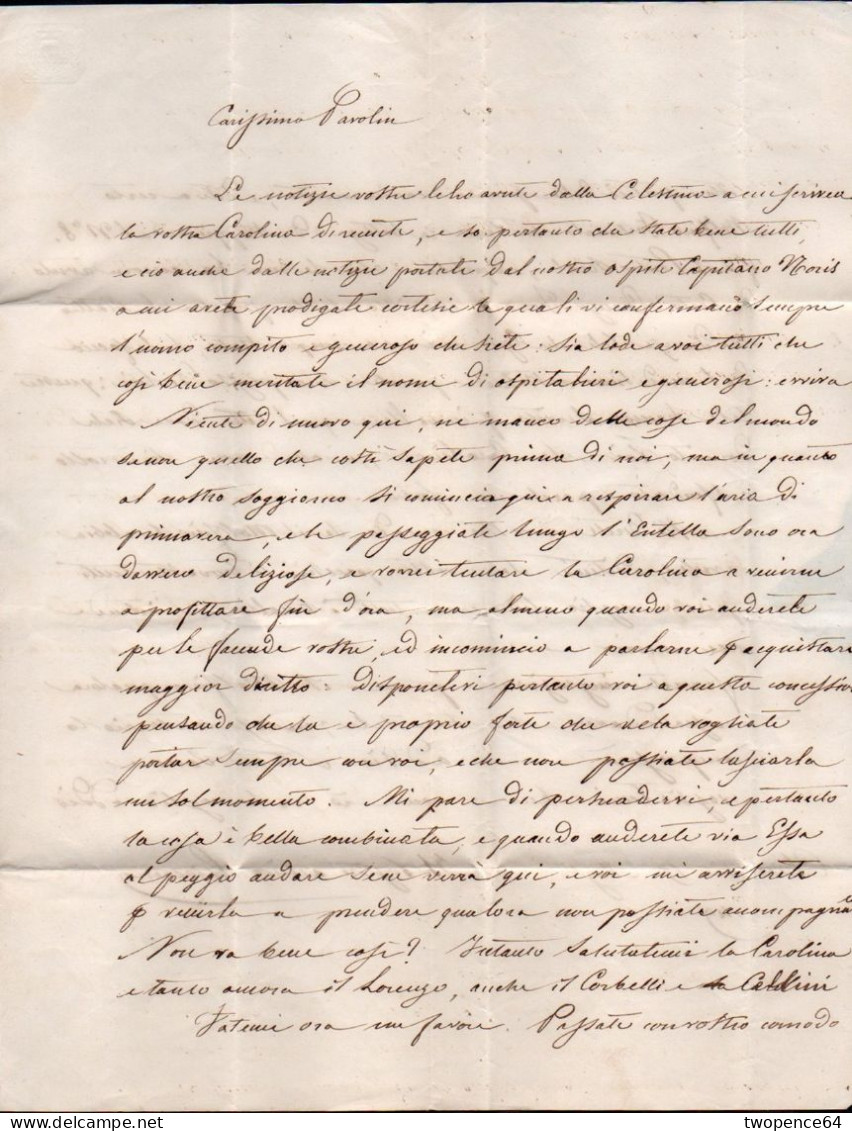 Carissimo Parolin
Le notizie vostre le ho avute dalla Celestina a cui scrivea
la vostra Carolina di recente, e so pertanto che state bene tutti,
e ciò anche dalle notizie portate dal nostro ospite Capitano Noris
a cui avete prodigate cortesie le quali vi confermano sempre
l'uomo compito e generoso che siete: sia lode a voi tutti che
così bene meritate il nome di ospitalieri e generosi: evviva
Niente di nuovo qui, ne manco delle cose del mondo
se non quello che costì sapete prima di noi, ma in quanto
al nostro soggiorno si comincia qui a respirare l'aria di
primavera, e le passeggiate lungo l'Entella sono ora
davvero deliziose, e vorrei tentare la Carolina a venirne
a profittare fin d'ora, ma almeno quando voi anderete
per le facende vostre, ed incomincio a parlarne p acquistare
maggior diritto: Disponetevi pertanto voi a questa concessione
pensando che la è proprio forte che ve la vogliate
portar sempre con voi, e che non possiate lasciarla
un sol momento. Mi pare di persuadervi, e pertanto
la cosa è bella combinata, e quando anderete via Essa
al peggio andare sene verrà qui, e voi mi avviserete
p venirla a prendere qualora non possiate accompagnarla
Non va bene così? Intanto salutatemi la Carolina
e tanto ancora il Lorenzo, anche il Corbelli e la Cellini
Fatemi ora un favore. Passate con vostro comodo
twopence64